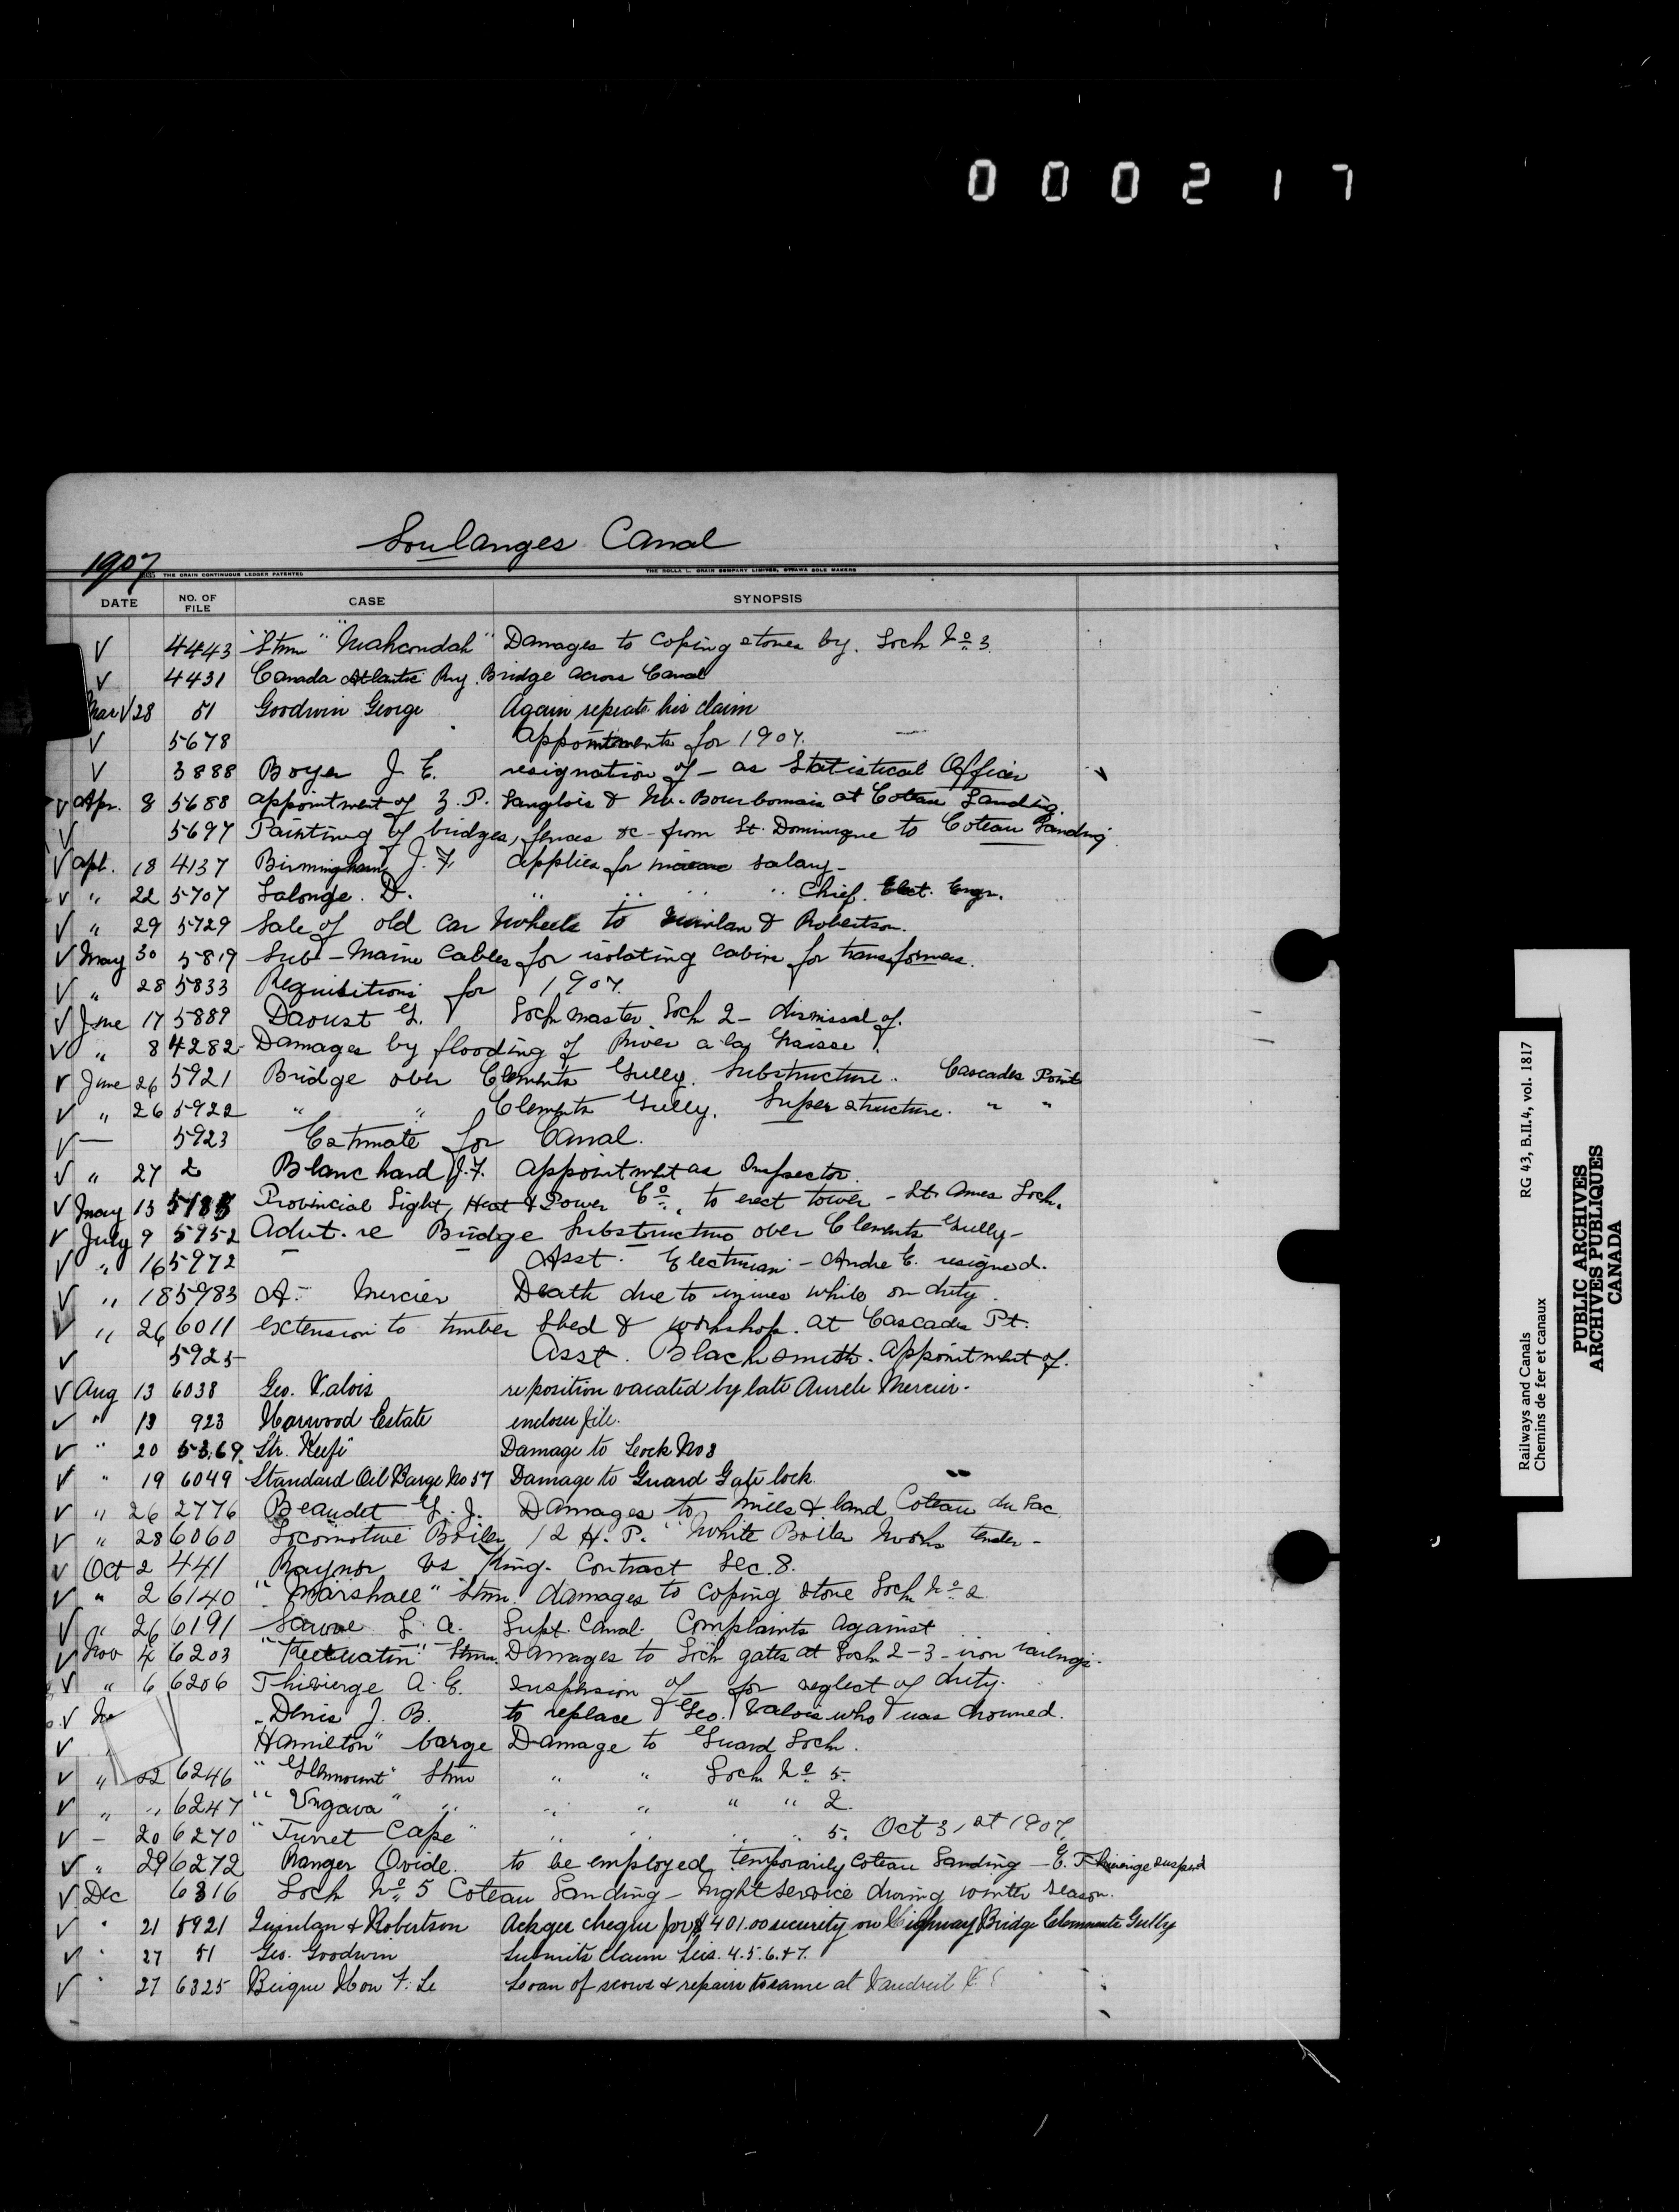 000217
Soulanges Canal
1907
THE CRAIN CONTINUOUS LEDGER PATENTED THE ROLLA L. CRAIN COMPANY LIMITED, OTTAWA SOLE MAKERS
DATE NO. OF FILE CASE SYNOPSIS
√ 4443 "Stmr" "Mahcondah" Damages to coping stones by. Lock No 3.
√ 4431 Canada Atlantic Ry. Bridge across Canal
Mar √ 28 51 Goodwin George Again repeats his claim
√ 5678 Appointments for 1907.
√ 3888 Boyer J. E. resignation of - as Statistical Officer
√ Apr. 8 5688 appointment of Z. P. Langlois & Bourbonnais at Coteau Landing
√ 5697 Painting of bridges, fences &c - from St. Dominique to Coteau Landing
√ Apl. 18 4137 Birmingham J. F. applies for salary -
√ " 22 5707 Lalonge. D. " " " " Chief. Elect. Engr.
√ " 29 5729 Sale of old car wheels to Quinlan & Robertson.
√ May 30 5819 Sub-Marine Cables for isolating cabins for transformers.
√ " 28 5833 Requisitions for 1907.
√ June 17 5889 Daoust Lock master Lock 2 - dismissal of.
√ " 8 4282 Damages by flooding of River a la Graisse.
√ June 26 5921 Bridge over Clements Gully. Substructure. Cascades Point
√ " 26 5922 " " Clements Gully. Superstructure. " "
√ — 5923 Estimate for Canal.
√ " 27 2 Blanchard J. F. appointment as Inspector.
√ May 13 Provincial Light, Heat & Power Co. to erect tower - Lock.
√ July 9 5952 Advt. re Bridge Substructure over Clements Gully -
√ " 16 5972 Asst. Electrician - Andre E. resigned.
√ " 18 5983 A. Mercier Death due to injuries while on duty.
√ " 26 6011 extension to timber shed & workshop. at Cascades Pt.
√ 5925 Asst. Blacksmith. Appointment of.
√ Aug 13 6038 Geo. Valois re position vacated by late Aurele Mercier.
√ " 13 923 Harwood Estate encloses file.
√ " 20 5369. Str. Damage to Lock No 3
√ " 19 6049 Standard Oil Barge No 57 Damage to Guard Gate lock.
√ " 26 2776 Beaudet G. J. Damages to mills & land Coteau du Lac.
√ " 28 6060 Locomotive Boiler, 12 H. P. White Boiler Works tender -
√ Oct 2 441 Raynor vs King. Contract Sec. 8.
√ " 2 6140 "Marshall" Stmr. damages to coping stone Lock No 2
√ " 26 6191 L. A. Supt. Canal. Complaints against
√ Nov 4 6203 "Keewatin" Stmr. Damages to Lock gates at Lock 2-3 - iron railings.
√ " 6 6206 Thivierge A. E. Suspension of for neglect of duty.
√ Denis J. B. to replace Geo. Valois who was drowned.
√ Hamilton" barge Damage to Guard Lock.
√ " 22 6246 "Glenmount" Stmr " " Lock No 5.
√ " " 6247 "Ungava" " " " " " 2.
√ - 20 6270 "Turret Cape" " " " " 5. Oct 31st 1907.
√ " 29 6272 Ranger Ovide. to be employed temporarily Coteau Landing - E. Thivierge suspend
√ Dec 6316 Lock No 5 Coteau Landing - Night Service during winter season.
√ " 21 5921 Quinlan & Robertson Ackges cheque for $401.00 security on Highway Bridge Clements Gully
√ " 27 51 Geo. Goodwin Submits claim Secs. 4. 5. 6. & 7.
√ " 27 6325 Beique Hon F. L. Loan of scows & repairs to same at Vaudreuil
Railways and Canals RG 43, B.II.4, vol. 1817
Chemins de fer et canaux
PUBLIC ARCHIVES
ARCHIVES PUBLIQUES
CANADA